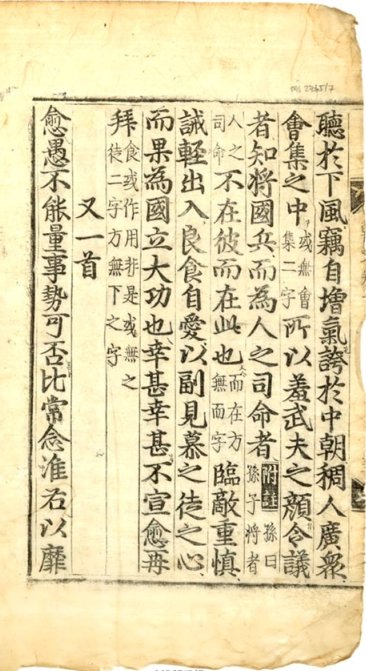 聽扵下風竊自增氣誇扵中朝稠人廣衆
會集之中或無會集二字所以羞武夫之顏令議
者知將國兵而為人之司命者附註孫曰孫子將者
人之司命不在彼而在此也而在方無而字臨敵重慎
誡軽出入良食自愛以副見慕之徒之心
而果為國立大功也幸甚幸甚不宣愈再
拜食或作用非是或無之徒二字方無下之字
又一首
愈愚不能量事勢可否比常念淮右以靡